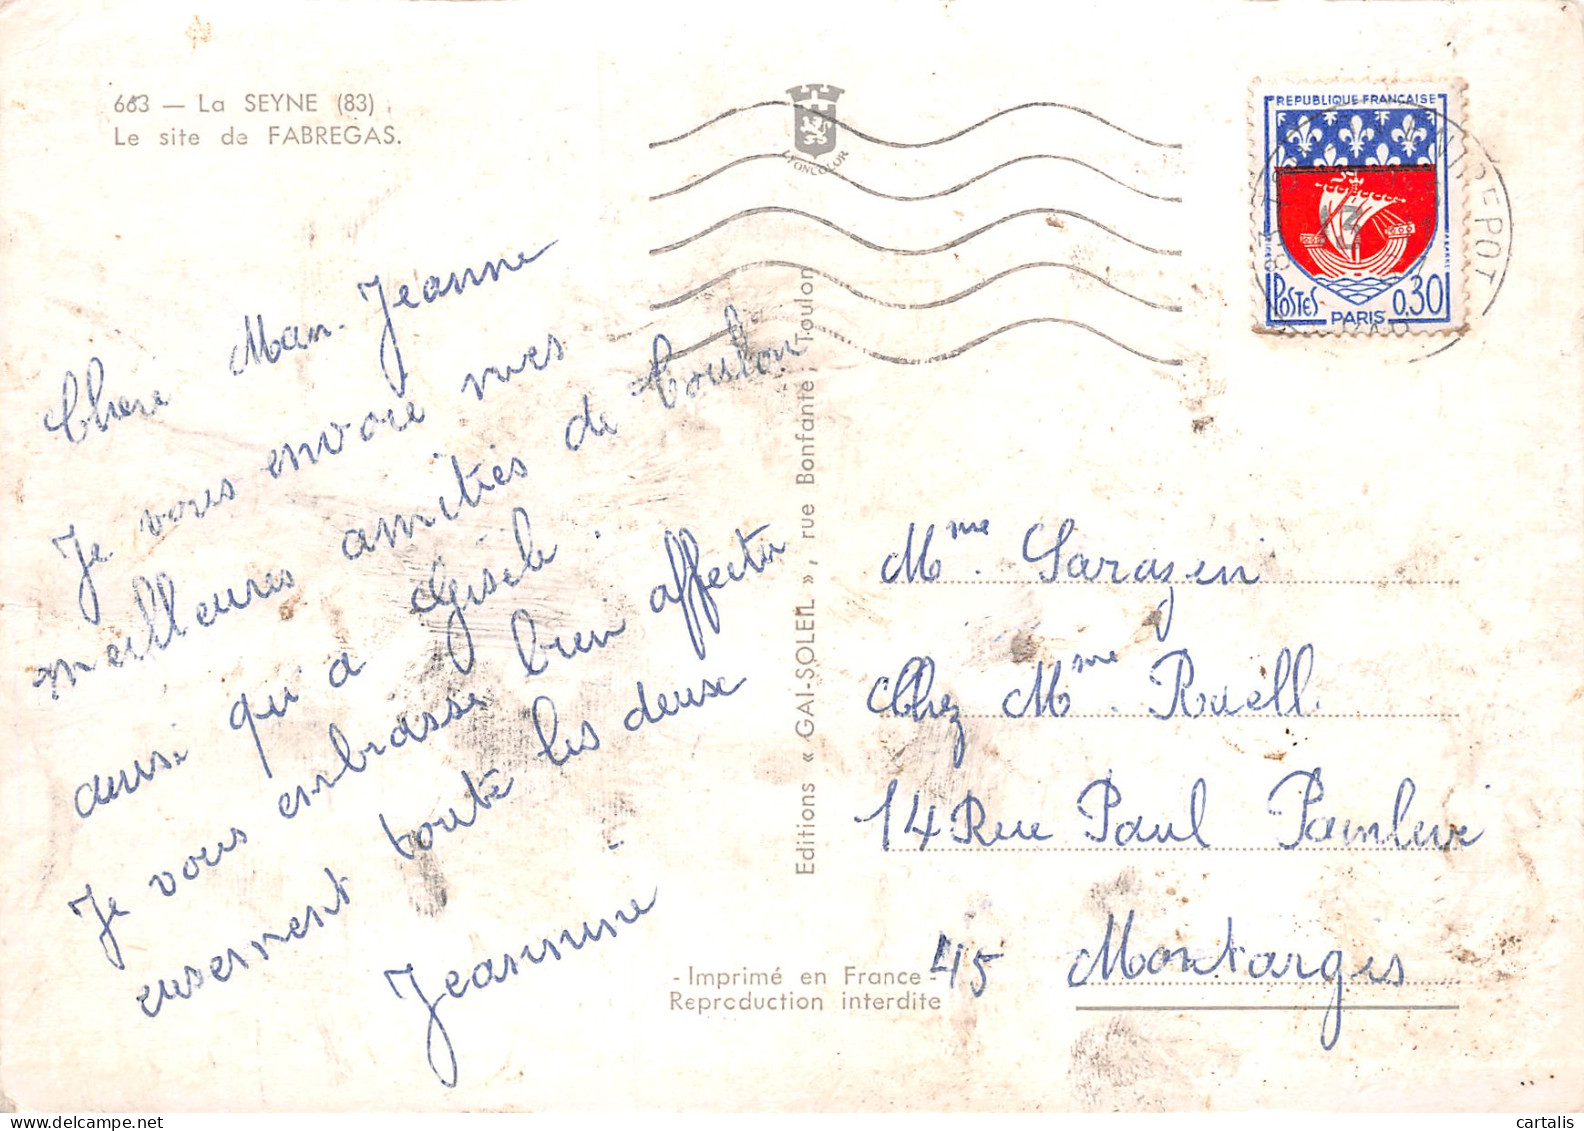 663 — La SEYNE (83)
Le site de FABREGAS.
LYONCOLOR
REPUBLIQUE FRANÇAISE
POSTES
PARIS
0.30
83
ENTREPOT
13
Chere Man-Jeanne
Je vous envoie mes
meilleures amitiés de Toulon
ausi qu'a Gisèle.
Je vous embrasse bien affectu
eusement toute les deux
Jeannine
Editions « GAI-SOLEIL », rue Bonfante, Toulon
Mme. Sarazin
Chez Mme. Ruell
14 Rue Paul Painlevé
45 Montargis
- Imprimé en France -
Reproduction interdite
cartalis